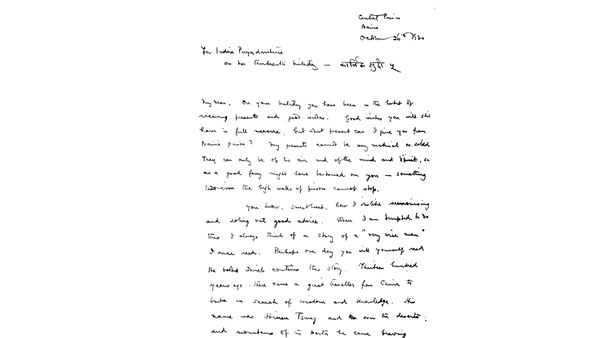 Central Prison
Naini
October 26th 1930
For Indira Priyadarshini
on her thirteenth birthday — कार्तिक सुदी ५
My dear, On your birthday you have been in the habit of
receiving presents and good wishes. Good wishes you will still
have in full measure, but what present can I give you from
Naini prison? My presents cannot be very material or solid.
They can only be of the air and of the mind and spirit,
as a good fairy might have bestowed on you — something
the high walls of prison cannot stop.
You know, sweetheart, how I dislike sermonising
and doling out good advice. When I am tempted to do
this I always think of a story of a "very wise man"
I once read. Perhaps one day you will yourself read
the book which contains this story. Thirteen hundred
years ago there came a great traveller from China to
India in search of wisdom and knowledge. His
name was Hiuen Tsang and over the deserts
and mountains of the north he came braving